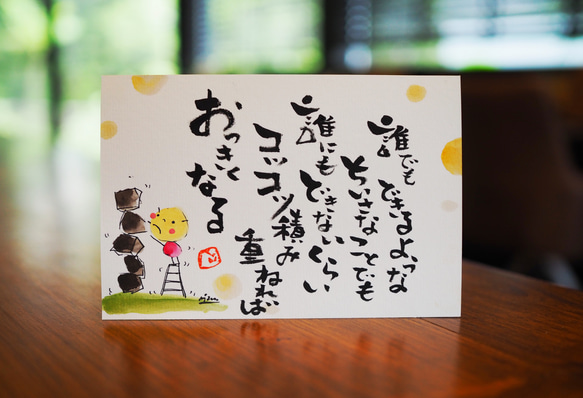 誰でも
できるよな
ちいさなことでも
誰にも
できないくらい
コツコツ積み
重ねれば
おっきく
なる